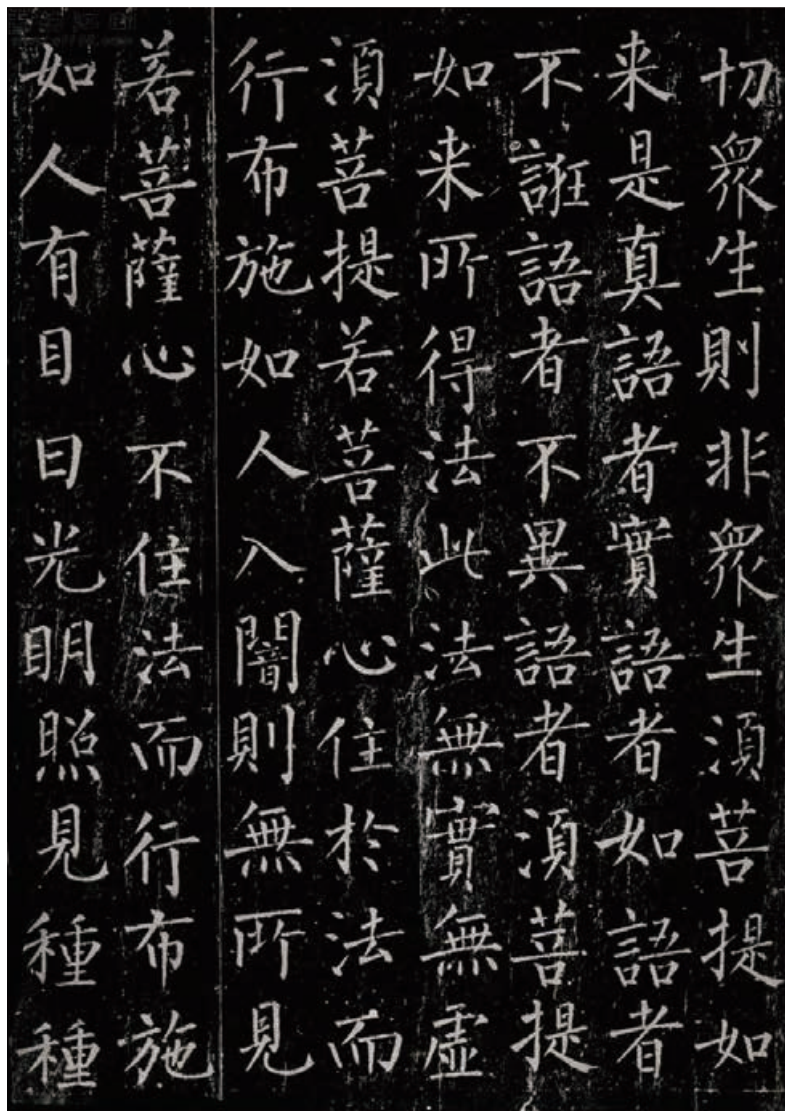 切眾生則非眾生湏菩提如
来是真語者實語者如語者
不誑語者不異語者湏菩提
如来所得法此法無實無虛
湏菩提若菩薩心住於法而
行布施如人入闇則無所見
若菩薩心不住法而行布施
如人有目日光明照見種種